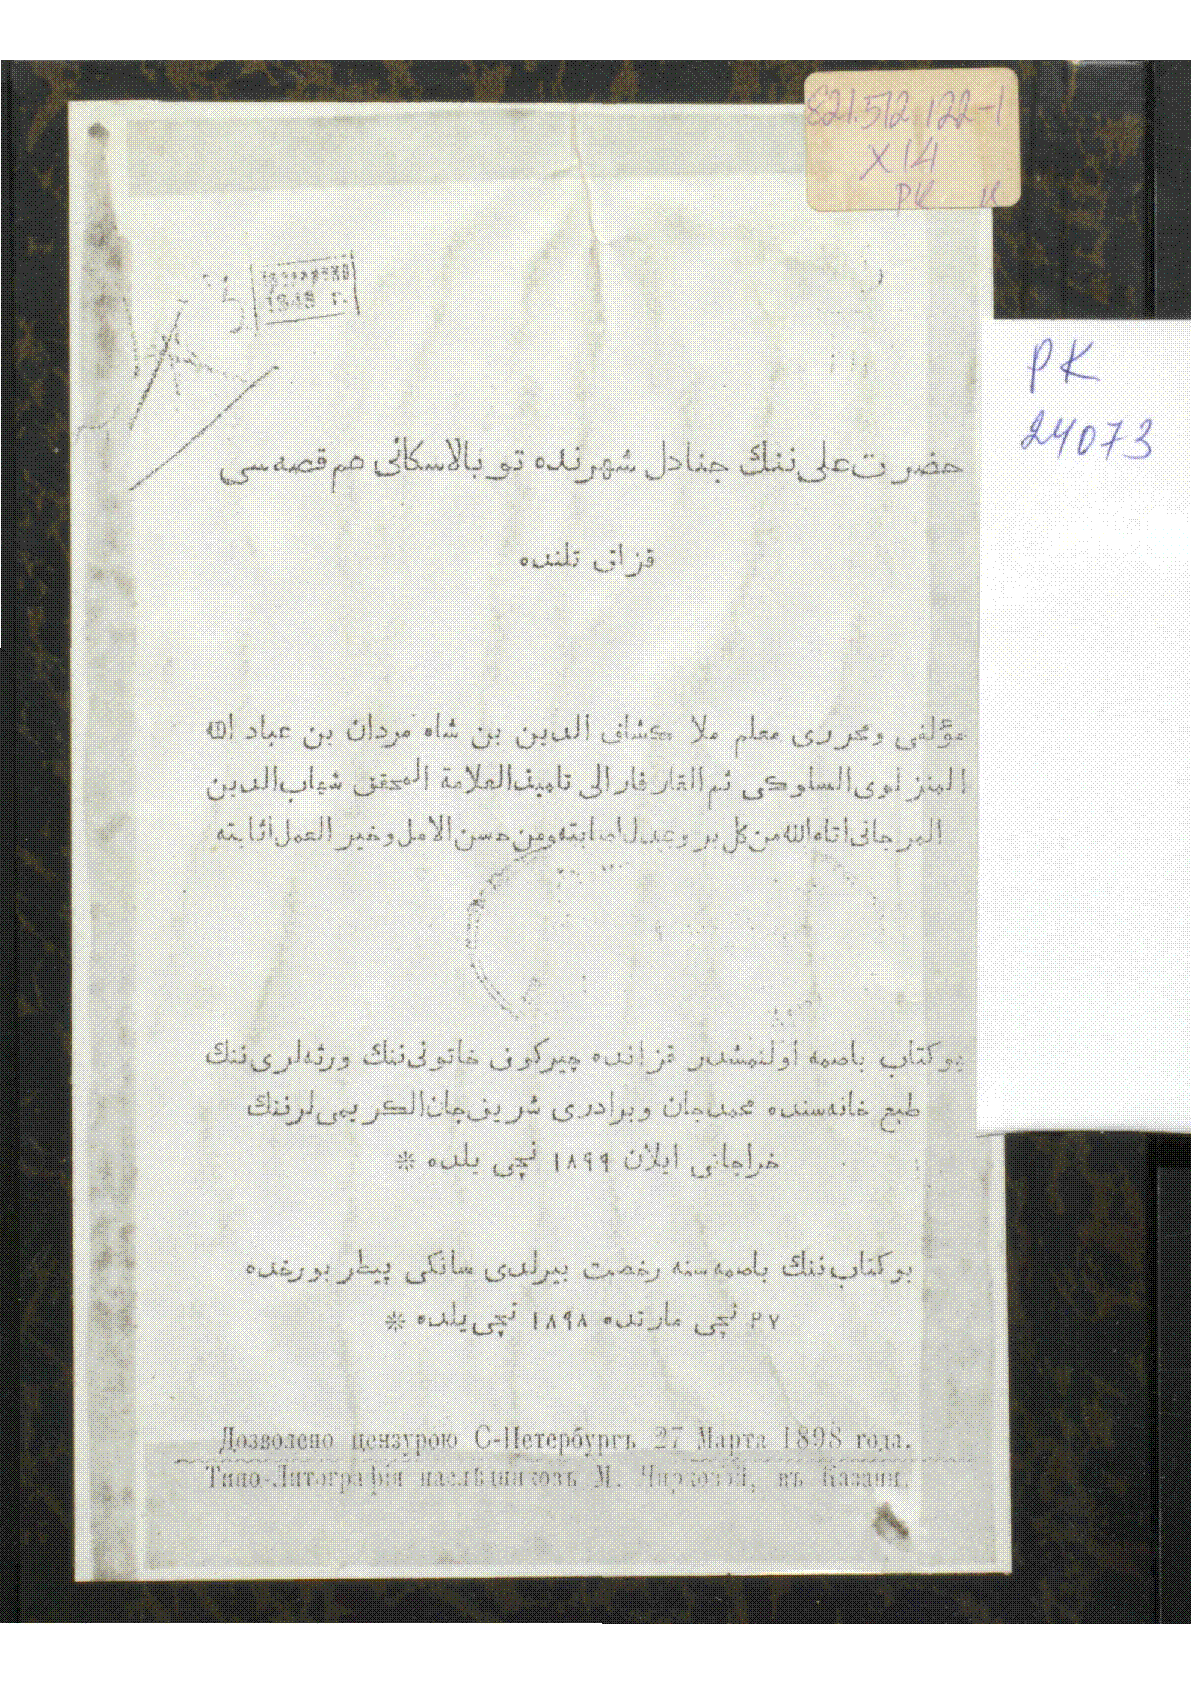 821.512.122-1
X14
РК
РК
24073
1949 г.
حضرت علی ننك جنادل شهرنده تو بالاسكانی هم قصه سی
قزاق تلنده
مؤلفی ومحرری معلم ملا كشاف الدین بن شاه مردان بن عباد الله
المنزلوی السلوكی ثم القارقارالی تلمیذ العلامة المحقق شهاب الدین
المرجانی اتاه الله من كل بر وعدل اصابته ومن حسن الامل وخیر العمل اثابته
بو كتاب باصمه اولنمشدر قزانده چیركوف خاتونی ننك ورثه لری ننك
طبع خانه سنده محمدجان وبرادری شریف جان الكریمی لرننك
خراجاتی ایلان ١٨٩٩ نچی یلده *
بو كتاب ننك باصمه سنه رخصت بیرلدی سانكی پیطر بورغده
٢٧ نچی مارتده ١٨٩٨ نچی یلده *
Дозволено цензурою С-Петербургъ 27 Марта 1898 года.
Типо-Литографія наслѣдниковъ М. Чирковой, въ Казани.